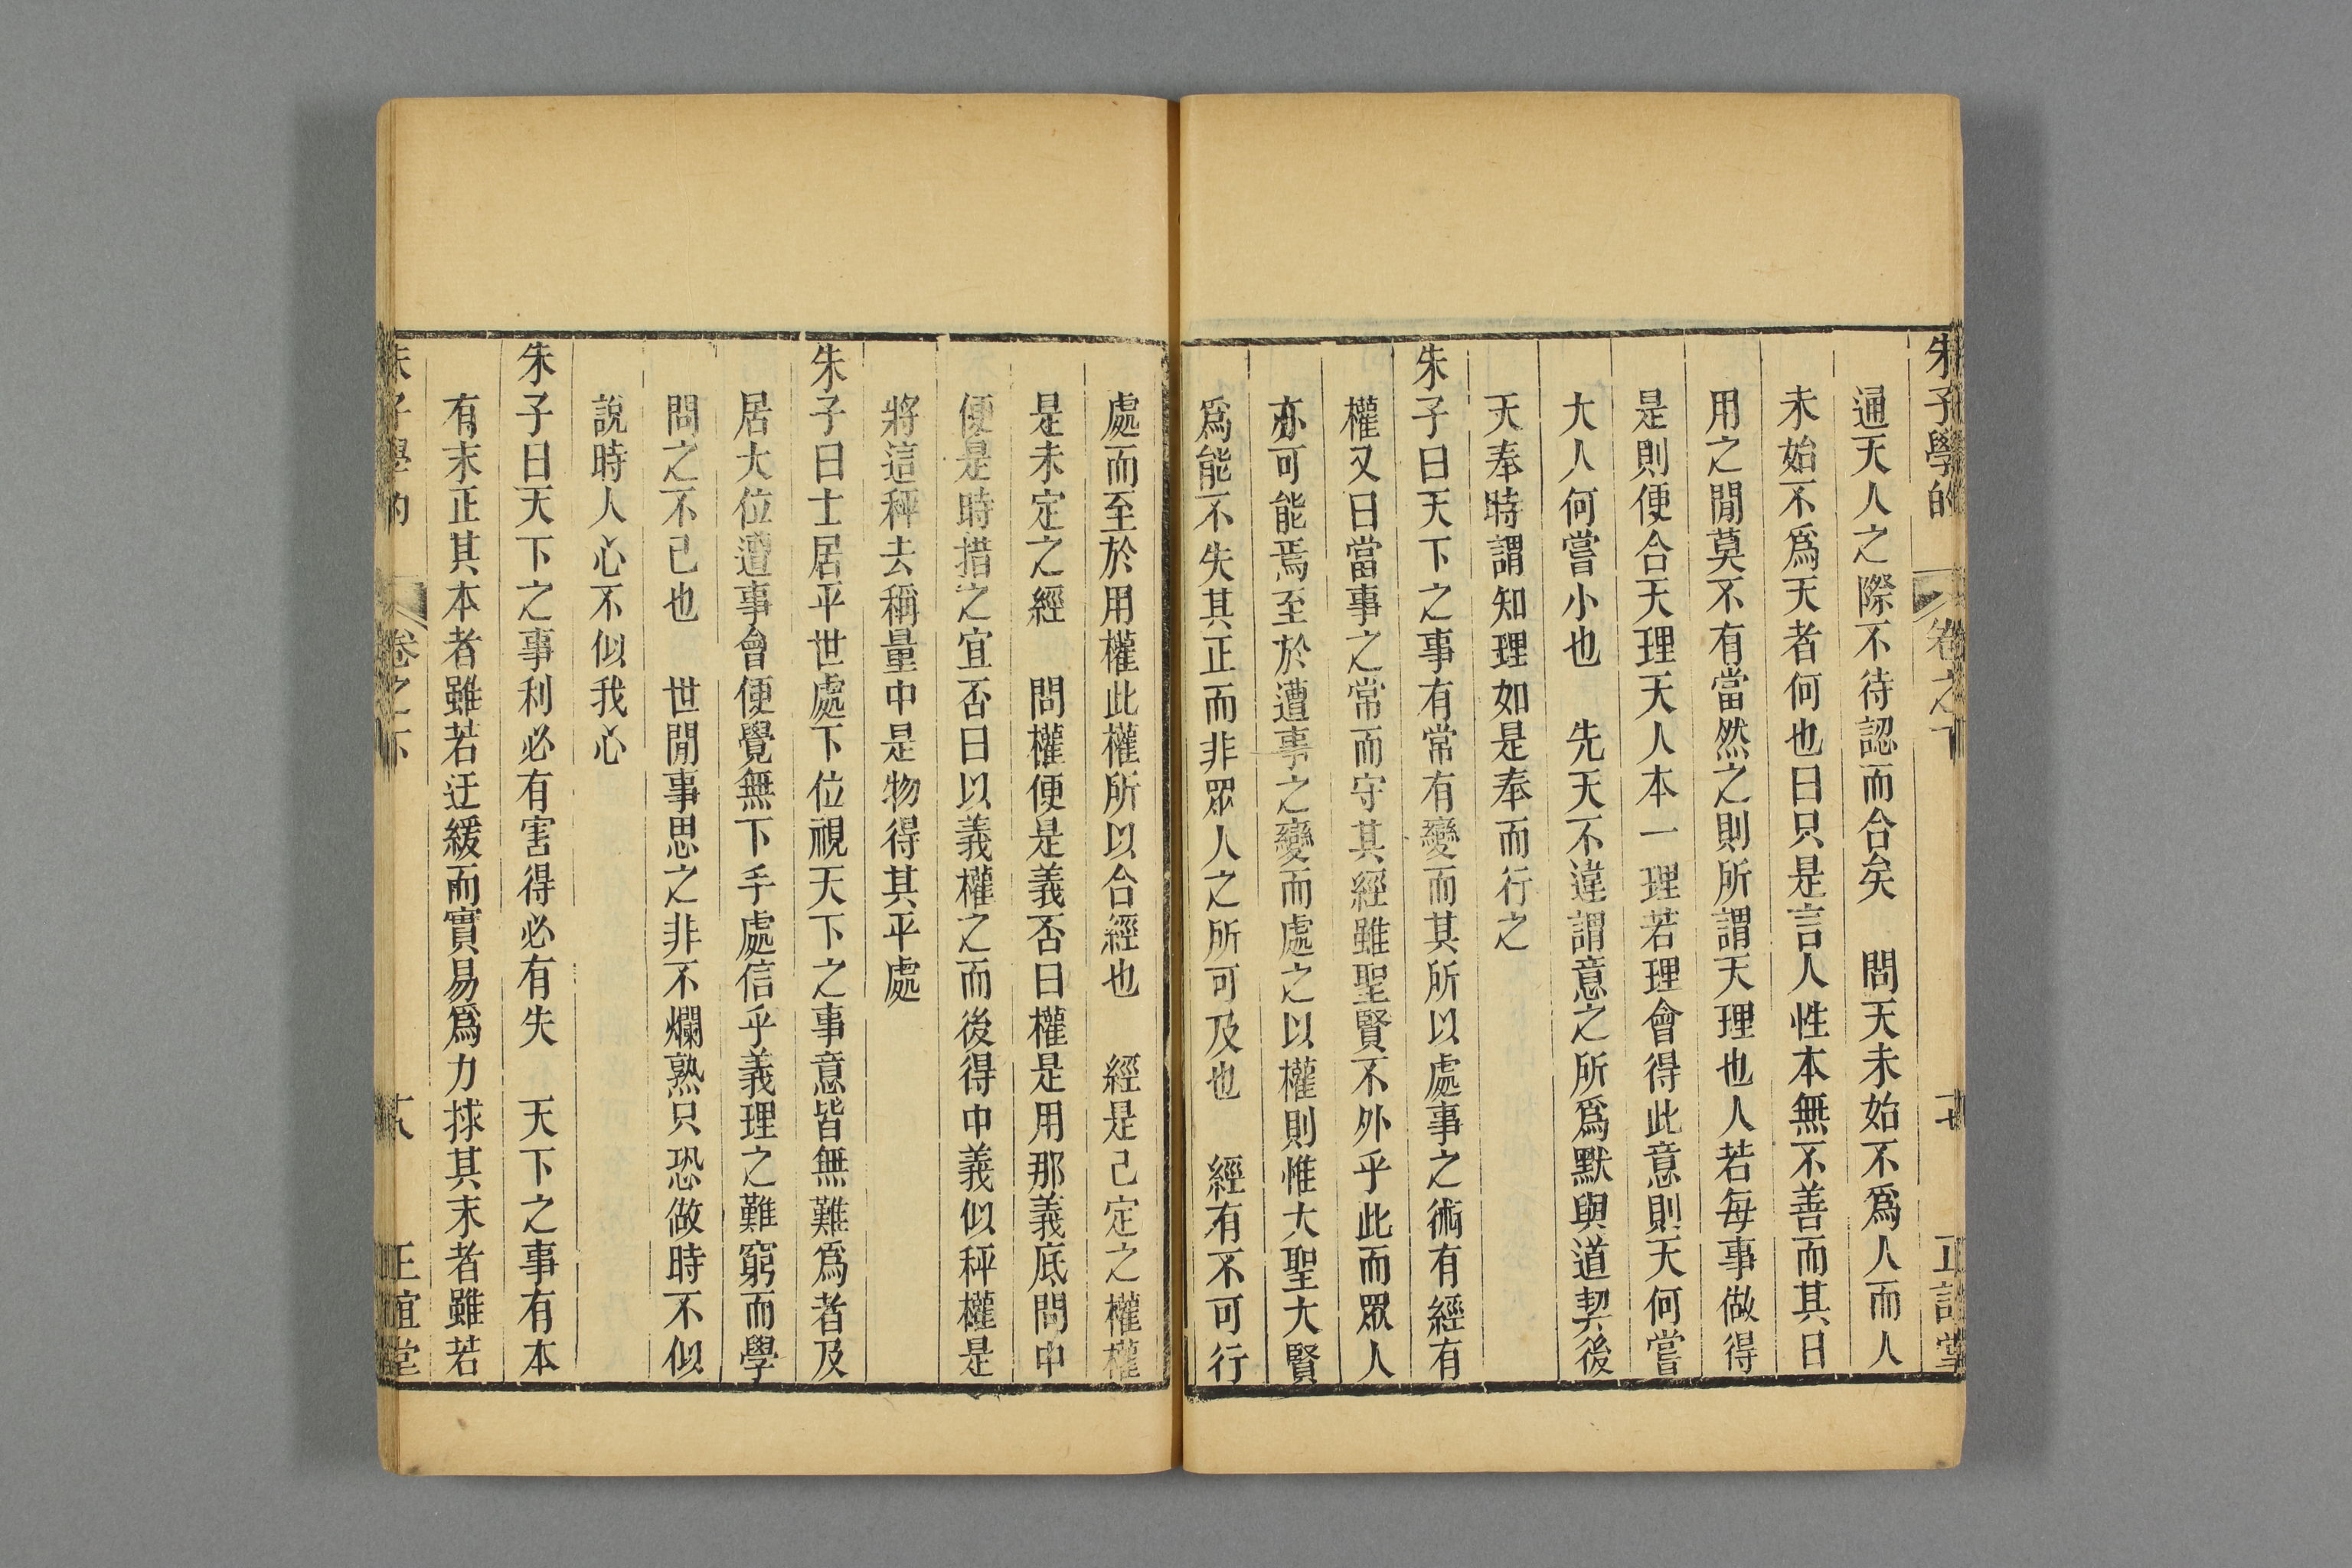 朱子學的 卷之下 十七 正誼堂
通天人之際不待認而合矣 問天未始不爲人而人
未始不爲天者何也曰只是言人性本無不善而其日
用之閒莫不有當然之則所謂天理也人若每事做得
是則便合天理天人本一理若理會得此意則天何嘗
大人何嘗小也 先天不違謂意之所爲默與道契後
天奉時謂知理如是奉而行之
朱子曰天下之事有常有變而其所以處事之術有經有
權又曰當事之常而守其經雖聖賢不外乎此而眾人
亦可能焉至於遭事之變而處之以權則惟大聖大賢
爲能不失其正而非眾人之所可及也 經有不可行
處而至於用權此權所以合經也 經是己定之權權
是未定之經 問權便是義否曰權是用那義底問中
便是時措之宜否曰以義權之而後得中義似秤權是
將這秤去稱量中是物得其平處
朱子曰士居平世處下位視天下之事意皆無難爲者及
居大位遭事會便覺無下手處信乎義理之難窮而學
問之不己也 世閒事思之非不爛熟只恐做時不似
說時人心不似我心
朱子曰天下之事利必有害得必有失 天下之事有本
有末正其本者雖若迂緩而實易爲力捄其末者雖若
朱子學的 卷之下 十八 正誼堂